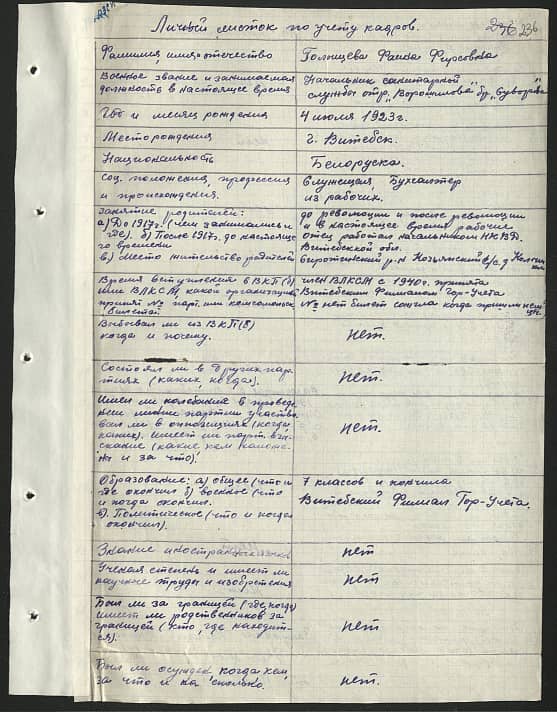 Личный листок по учету кадров.
236
Фамилия, имя и отчество
Голынцева Фаина Фирсовна
Военное звание и занимаемая
должность в настоящее время
Начальник санитарной
службы отр. „Ворошилова" бр. „Суворова"
Год и месяц рождения
4 июля 1923 г.
Место рождения
г. Витебск.
Национальность
Белоруска.
Соц. положение, профессия
и происхождения.
Служащая, Бухгалтер
из рабочих.
Занятие родителей:
а) До 1917 г. (чем занимались и
где). б) После 1917 г. до настояще
го времени
в) Место жительство родителей
до революции и после революции
и в настоящее время рабочие
отец работал начальником НКВД.
Витебской обл.
Сиротинский р-н с/с д.
Время вступления в ВКП(б)
или ВЛКСМ, какой организацией
принят № парт. или комсомольск.
билета
член ВЛКСМ с 1940 г. принята
Витебским Филиалом Гор-Учета
№ нет билет сожгла когда пришли немцы.
Выбывал ли из ВКП(б)
когда и почему.
нет.
Состоял ли в других пар-
тиях (каких, когда).
нет.
Имел ли колебание в проведе
нии линии партии участво
вал ли в оппозициях (когда,
каких). имеет ли парт. взы-
скание (какие кем наложе-
ны и за что).
нет.
Образование: а) общее (что и
где окончил б) военное (что
и когда окончил.
в). Политическое (что и когда
окончил).
7 классов и кончила
Витебский Филиал Гор-Учета.
Знание иностранных языков
нет
Ученая степень и имеет ли
научные труды и изобретения
нет
Был ли за границей (где, когда)
имеет ли родственников за
границей (кто, где находит-
ся).
нет
Был ли осужден когда кем,
за что и на сколько.
нет.